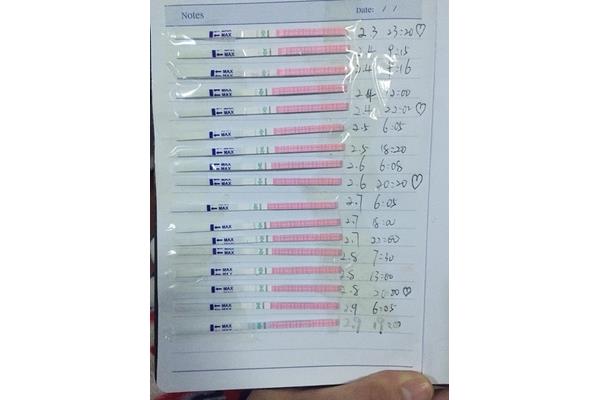 Notes
Date: / /
MAX 2.3 23:20♡
MAX 2.4 9:15
MAX 2.4 :16
MAX 2.4 12:00
MAX 2.4 22:02♡
MAX 2.5 6:05
MAX 2.5 18:20
MAX 2.6 6:08
MAX 2.6 20:20♡
MAX 2.7 6:05
MAX 2.7 18:00
MAX 2.7 22:00
MAX 2.8 7:30
MAX 2.8 13:00
MAX 2.8 20:00♡
MAX 2.9 6:05
MAX 2.9 19:00